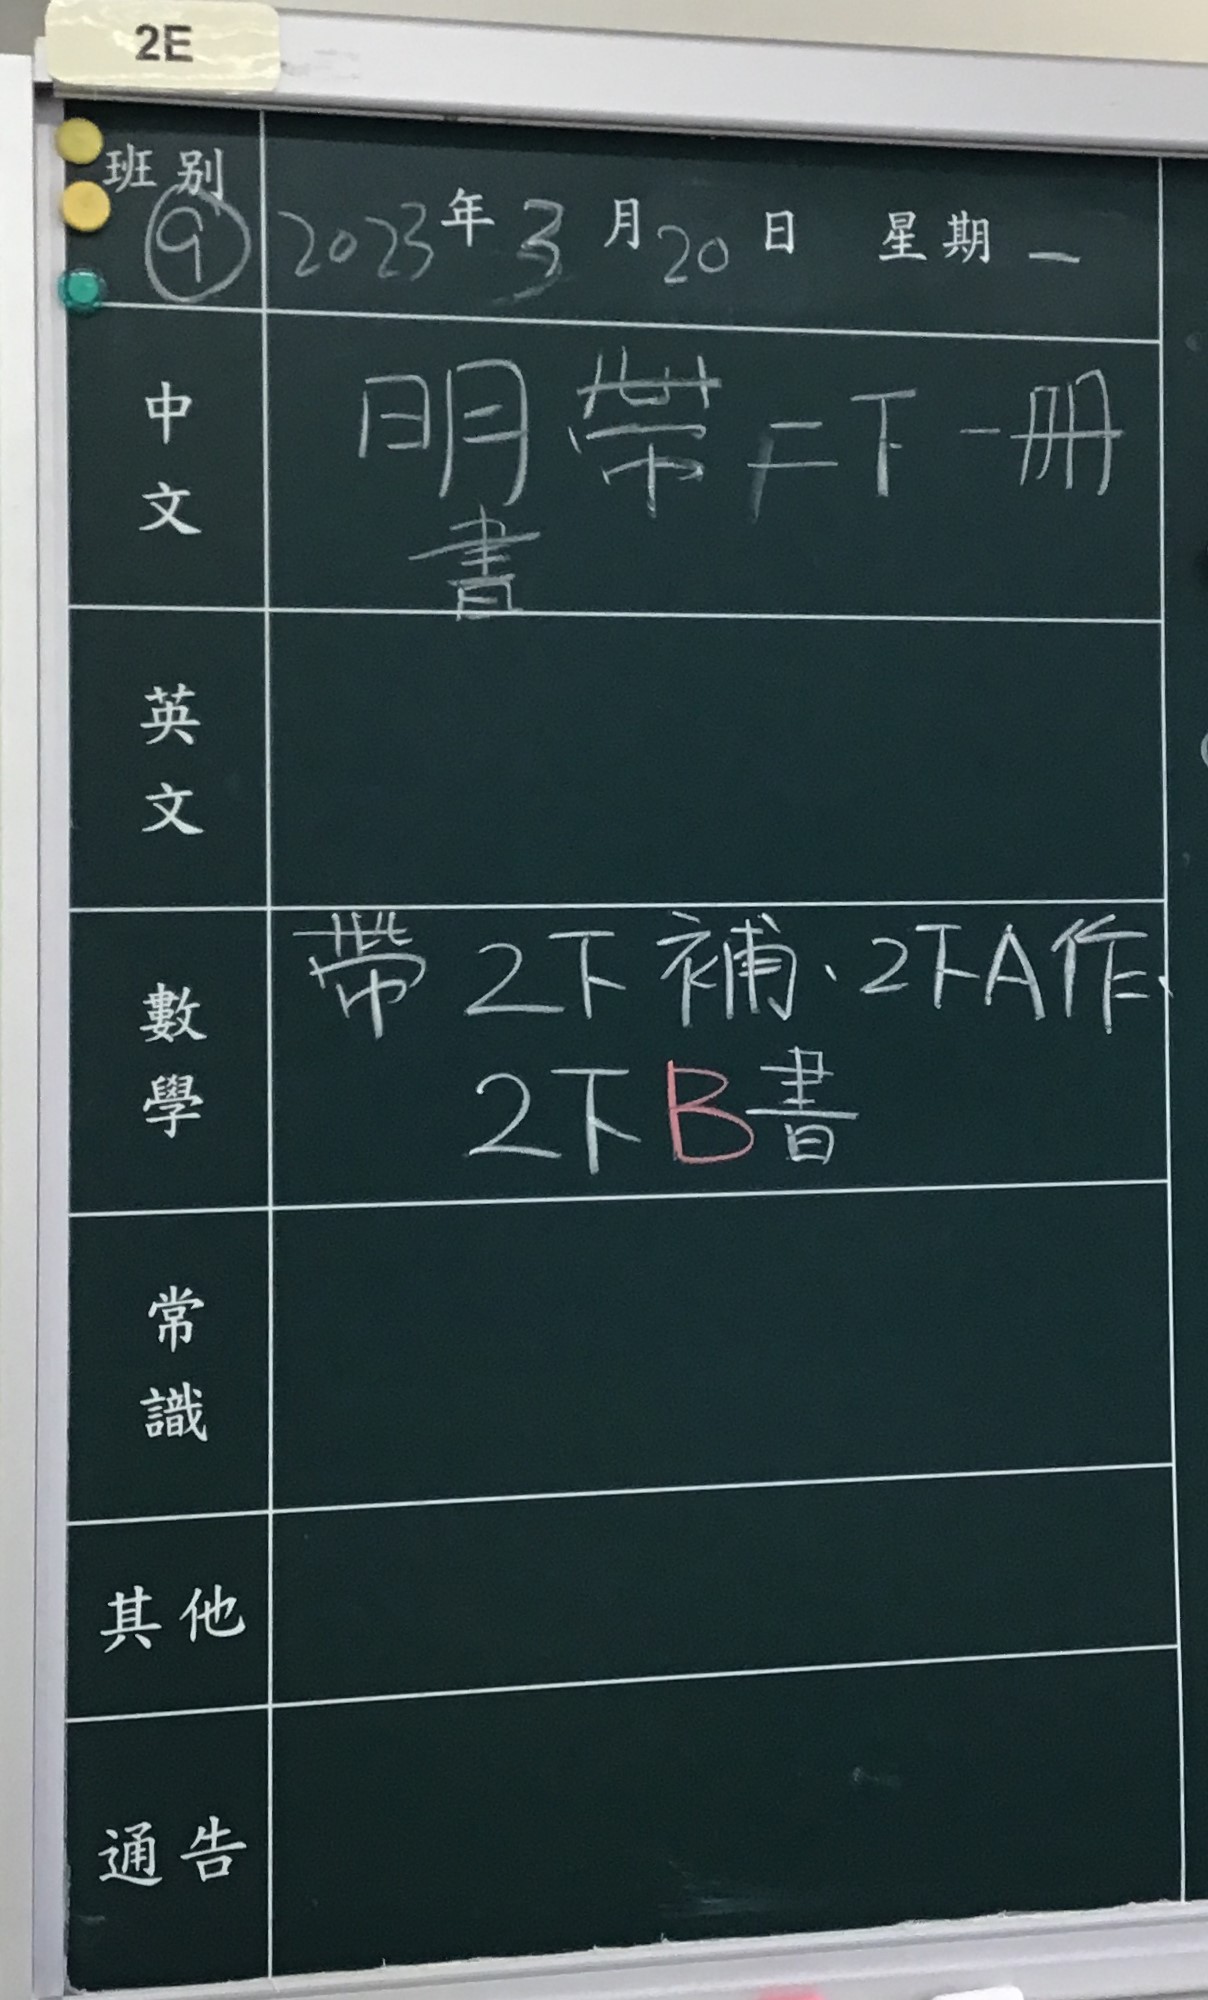 2E
班別
⑨ 2023年3月20日 星期一
中文
明帶二下一册
書
英文
數學
帶 2下補、2下A作、
2下B書
常識
其他
通告